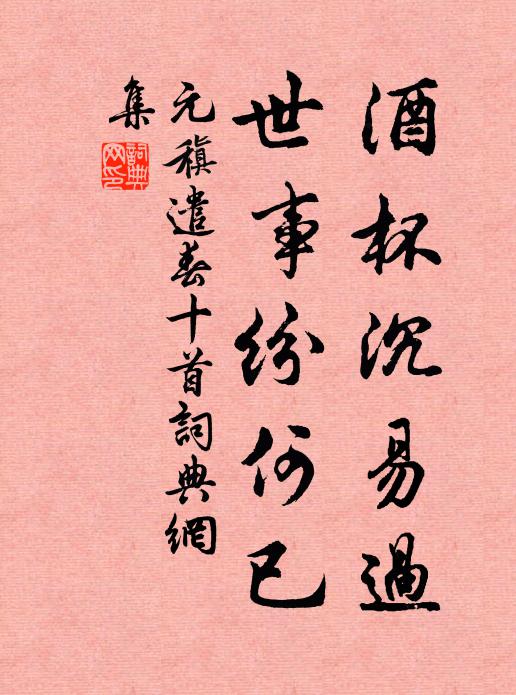 酒杯沉易過
世事紛何已
元稹遣春十首詞典網
集
詞典
網印